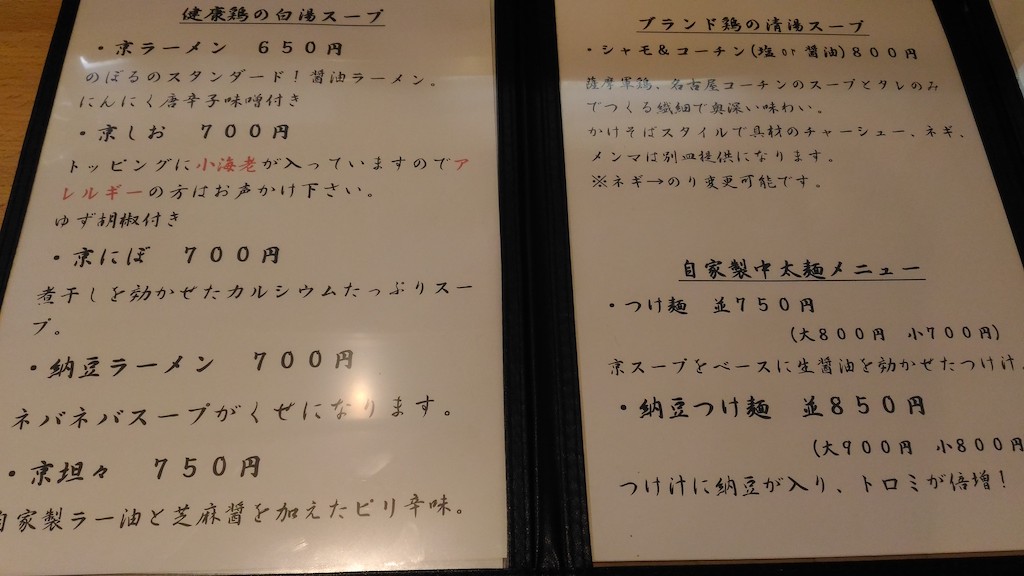 健康鶏の白湯スープ
・京ラーメン　６５０円
のぼるのスタンダード！醤油ラーメン。
にんにく唐辛子味噌付き
・京しお　７００円
トッピングに小海老が入っていますのでア
レルギーの方はお声かけ下さい。
ゆず胡椒付き
・京にぼ　７００円
煮干しを効かせたカルシウムたっぷりスー
プ。
・納豆ラーメン　７００円
ネバネバスープがくせになります。
・京坦々　７５０円
自家製ラー油と芝麻醤を加えたピリ辛味。
ブランド鶏の清湯スープ
・シャモ＆コーチン(塩 or 醤油)８００円
薩摩軍鶏、名古屋コーチンのスープとタレのみ
でつくる繊細で奥深い味わい。
かけそばスタイルで具材のチャーシュー、ネギ、
メンマは別皿提供になります。
※ネギ→のり変更可能です。
自家製中太麺メニュー
・つけ麺　並７５０円
(大８００円　小７００円)
京スープをベースに生醤油を効かせたつけ汁。
・納豆つけ麺　並８５０円
(大９００円　小８００円
つけ汁に納豆が入り、トロミが倍増！